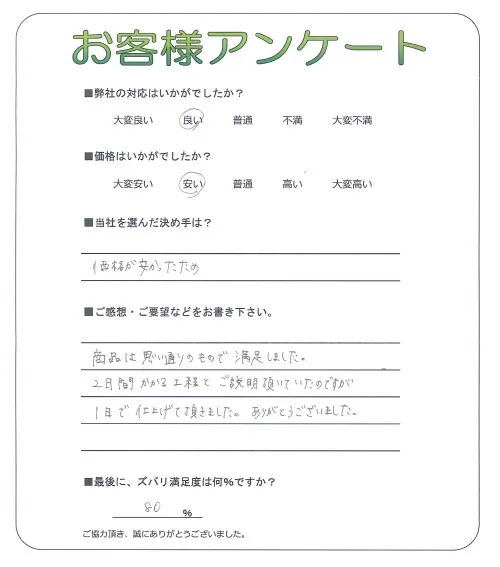 お客様アンケート
■弊社の対応はいかがでしたか？
大変良い 良い 普通 不満 大変不満
■価格はいかがでしたか？
大変安い 安い 普通 高い 大変高い
■当社を選んだ決め手は？
価格が安かったため
■ご感想・ご要望などをお書き下さい。
商品は思い通りのもので満足しました。
2日間かかる工程とご説明頂いていたのですが
1日で仕上げて頂きました。ありがとうございました。
■最後に、ズバリ満足度は何％ですか？
80 %
ご協力頂き、誠にありがとうございました。